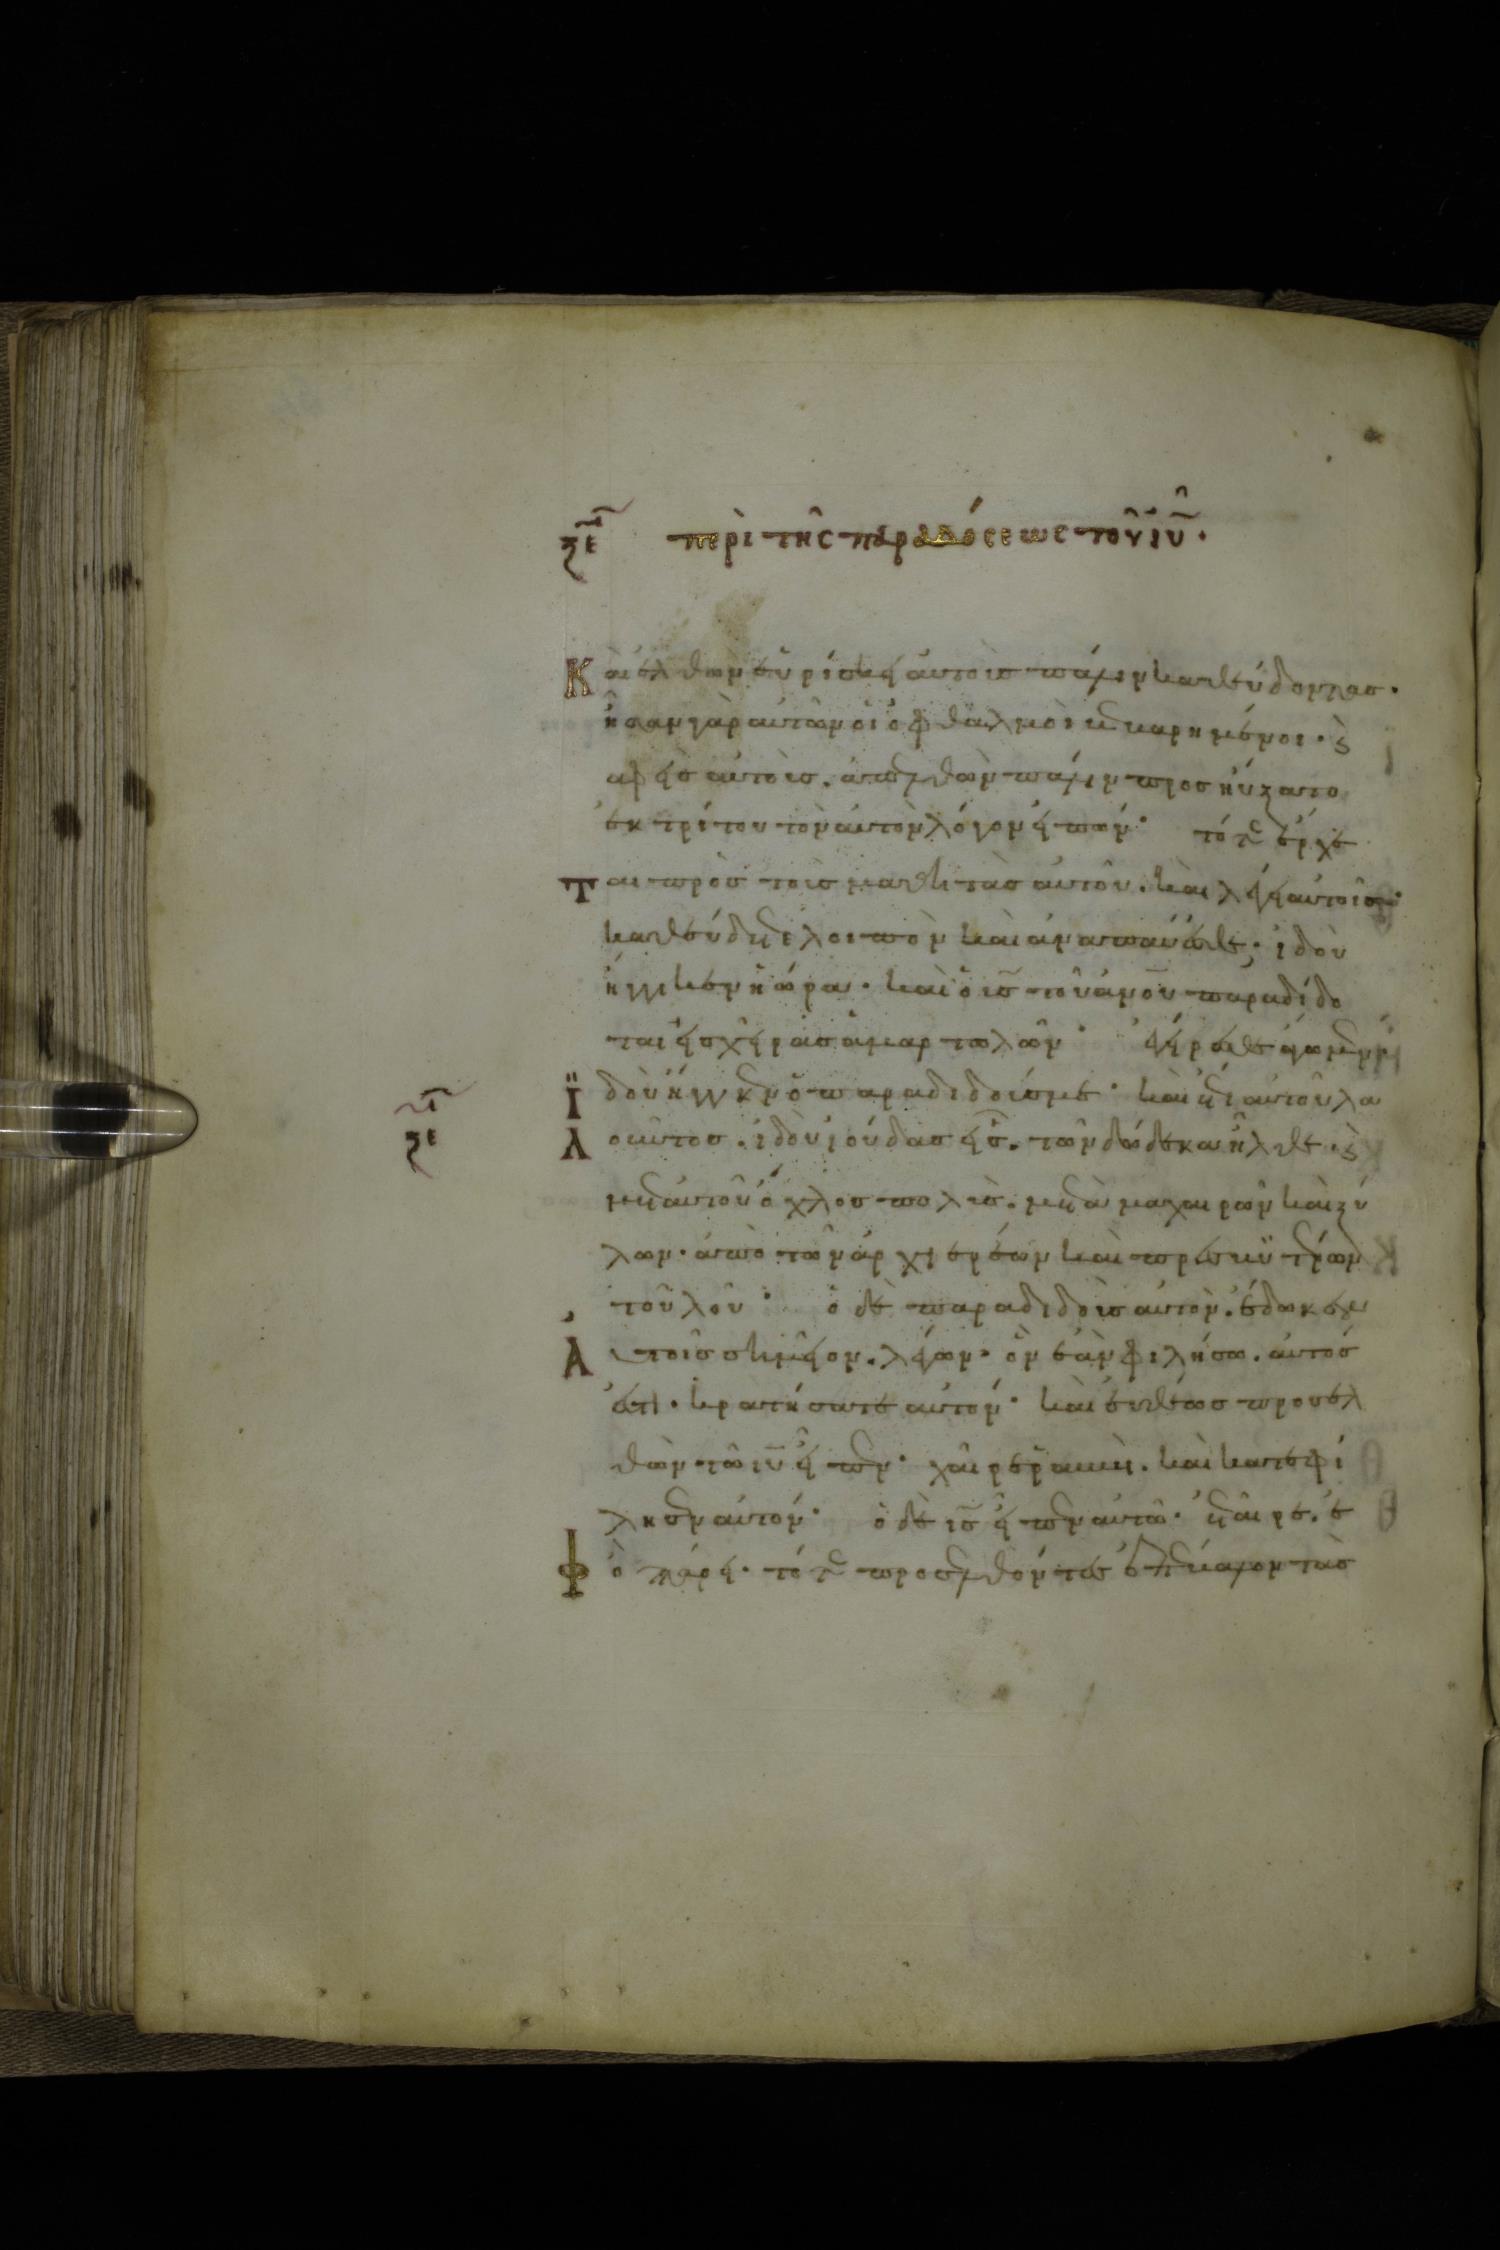 ξε περὶ τῆς παραδόσεως τοῦ ἰῦ.
Καὶ ἐλθὼν εὑρίσκει αὐτοὺς πάλιν καθεύδοντας.
ἦσαν γὰρ αὐτῶν οἱ ὀφθαλμοὶ βεβαρημένοι. ϗ
ἀφεὶς αὐτοὺς. ἀπελθὼν πάλιν προσηύξατο
ἐκ τρίτου τὸν αὐτὸν λόγον εἰπών. τότε ἔρχε
ται πρὸς τοὺς μαθητὰς αὐτοῦ. καὶ λέγει αὐτοῖς.
καθεύδετε λοιπὸν καὶ ἀναπαύεσθε. ἰδοὺ
ἤγγικεν ἡ ὥρα. καὶ ὁ υἱς τοῦ ἀνου παραδίδο
ται εἰς χεῖρας ἁμαρτωλῶν. ἐγείρεσθε ἄγωμεν.
ἰδοὺ ἤγγικεν ὁ παραδιδούς με. καὶ ἔτι αὐτοῦ λα
ξε λοῦντος. ἰδοὺ ἰούδας εἷς. τῶν δώδεκα ἦλθε. ϗ
μετ αὐτοῦ ὄχλος πολὺς. μετὰ μαχαιρῶν καὶ ξύ
λων. ἀπὸ τῶν ἀρχιερέων καὶ πρεσβυτέρων
τοῦ λαοῦ. ὁ δὲ παραδιδοὺς αὐτὸν. ἔδωκεν
αὐτοῖς σημεῖον. λέγων. ὃν ἐὰν φιλήσω. αὐτός
ἐστι. κρατήσατε αὐτόν. καὶ εὐθέως προσελ
θὼν τῶ ἰυ εἶπεν. χαῖρε ῥαββὶ. καὶ κατεφί
λησεν αὐτόν. ὁ δὲ ις εἶπεν αὐτῶ. ἑταῖρε. ἐ
φ ὃ πάρει. τότε προσελθόντες ἐπέβαλον τὰς